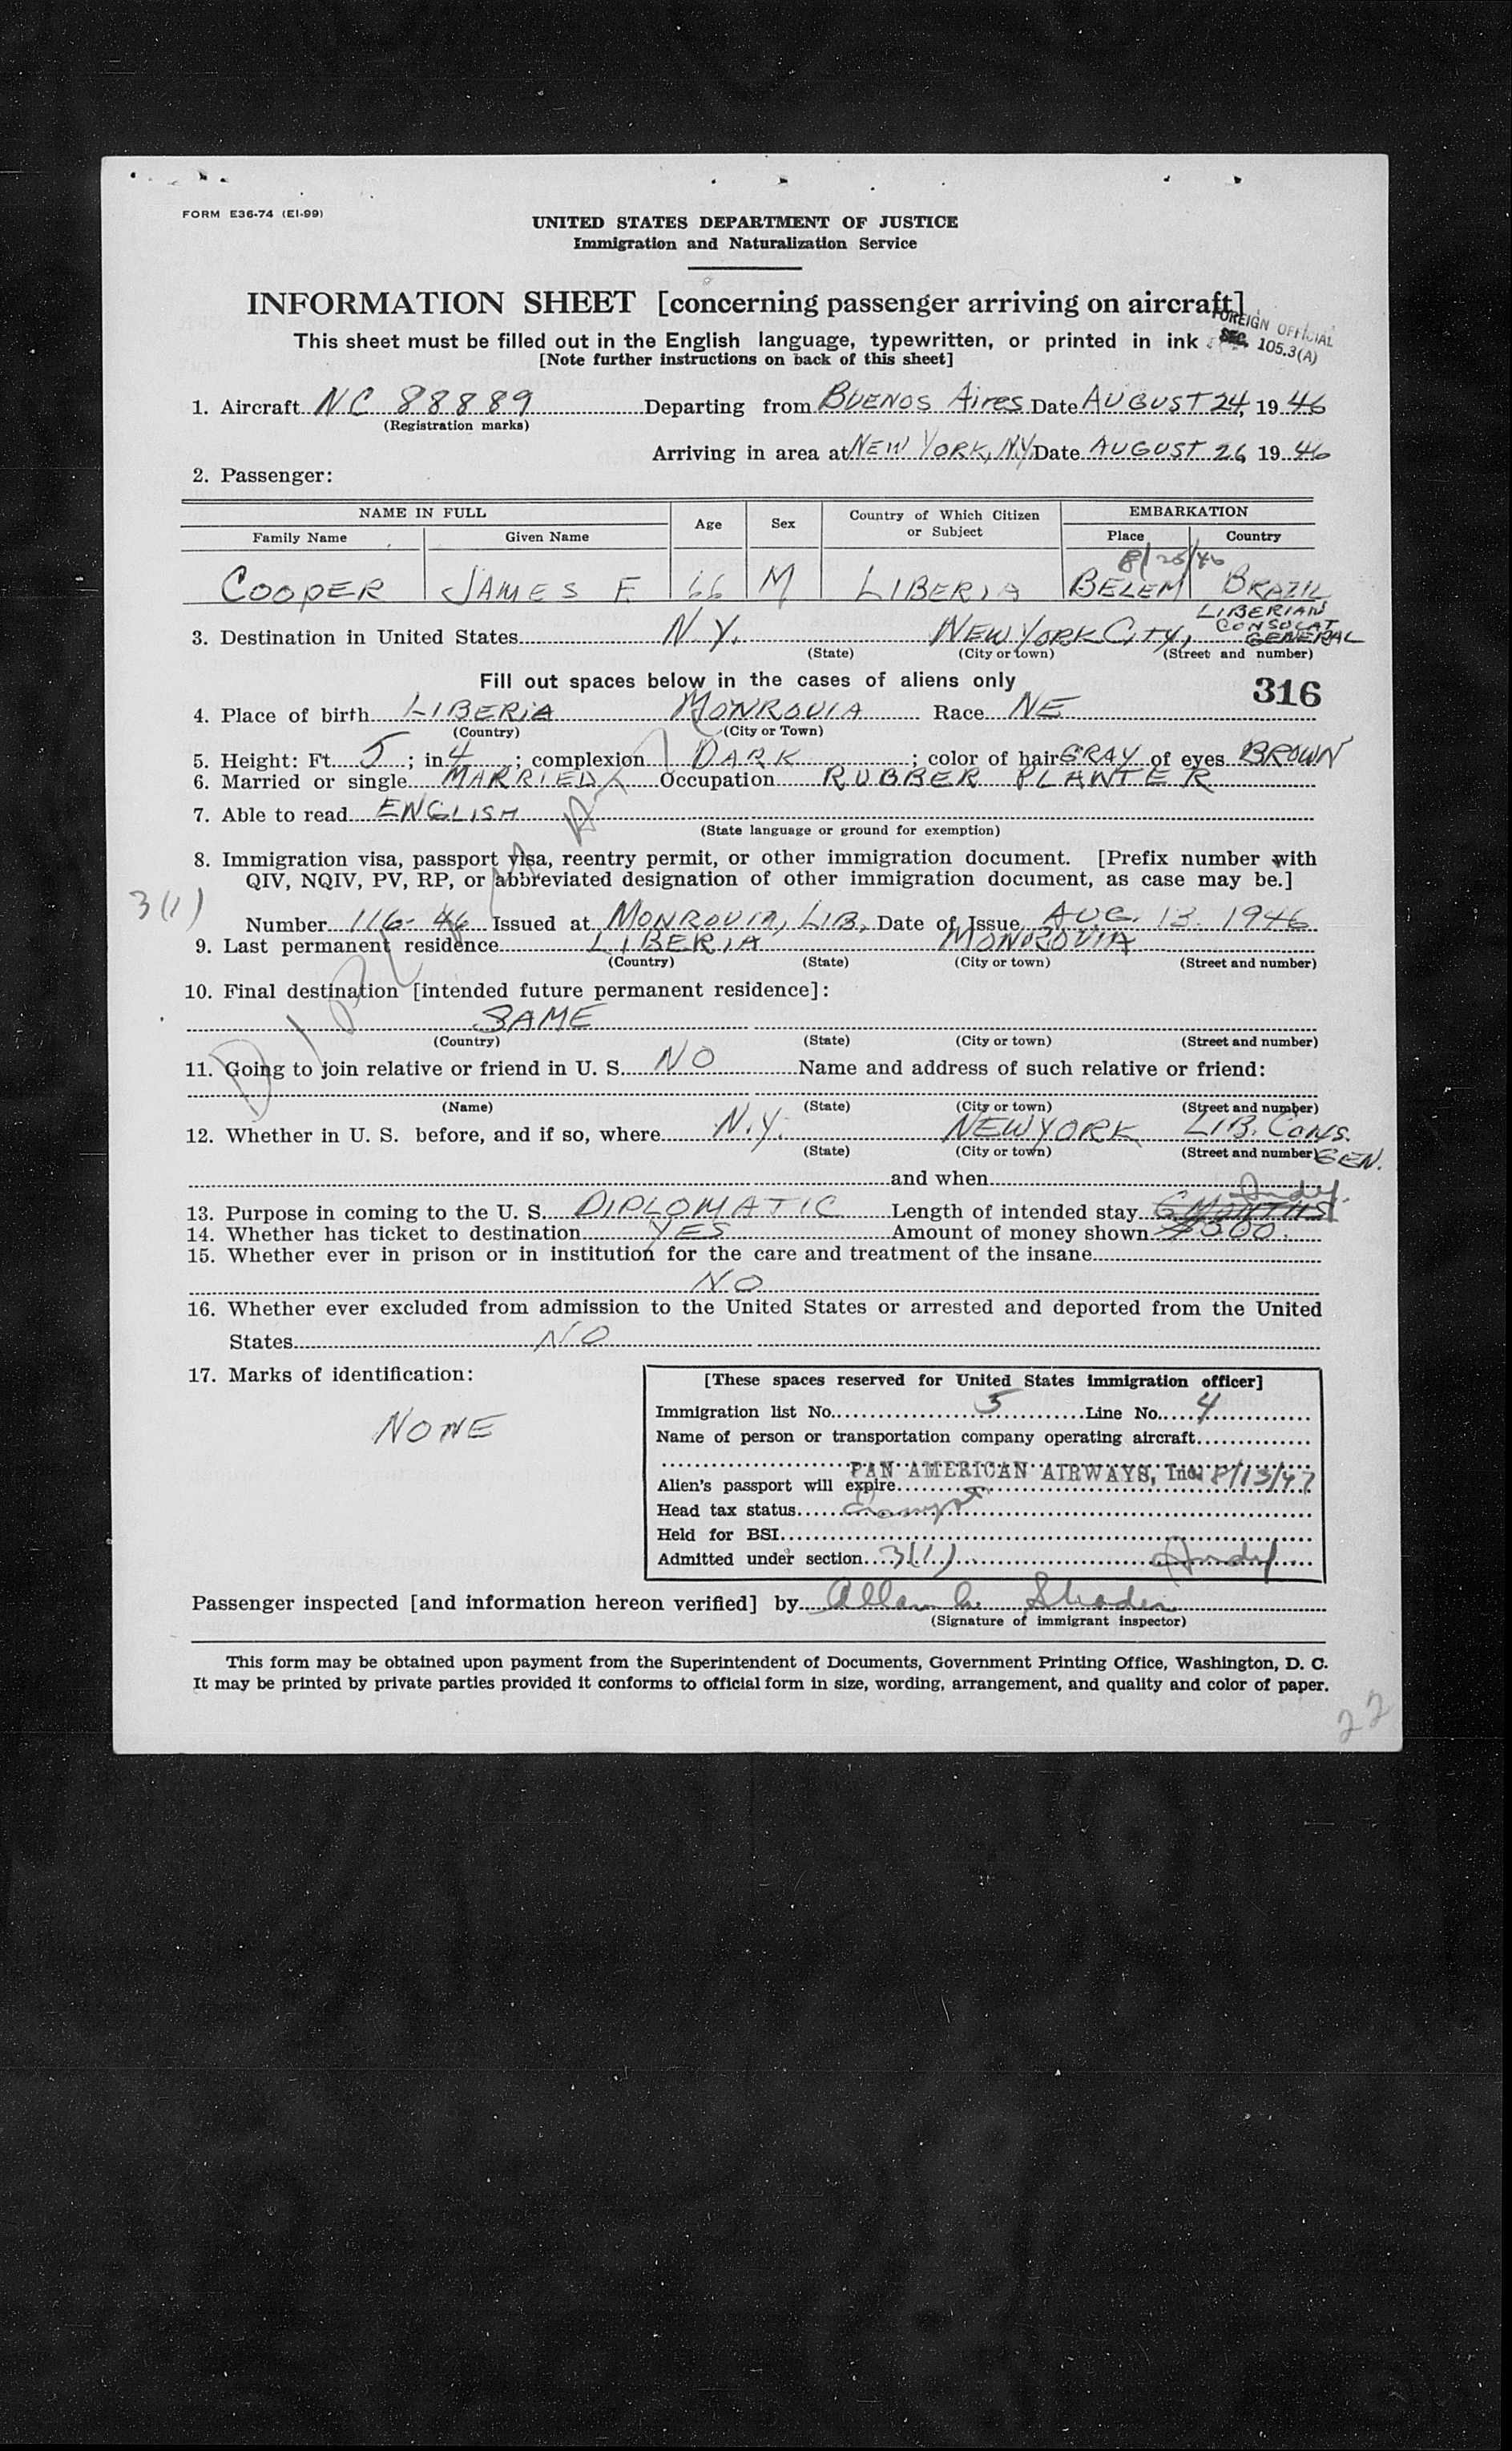 FORM E36-74 (EI-99)
UNITED STATES DEPARTMENT OF JUSTICE
Immigration and Naturalization Service
INFORMATION SHEET [concerning passenger arriving on aircraft]
FOREIGN OFFICIAL
SEC. 105.3(A)
This sheet must be filled out in the English language, typewritten, or printed in ink
[Note further instructions on back of this sheet]
1. Aircraft NC 88889 Departing from BUENOS AIRES Date AUGUST 24, 19 46
(Registration marks)
Arriving in area at NEW YORK, N.Y. Date AUGUST 26, 19 46
2. Passenger:
NAME IN FULL Age Sex Country of Which Citizen or Subject EMBARKATION
Family Name Given Name Place Country
8/25/46
COOPER JAMES F. 66 M LIBERIA BELEM BRAZIL
LIBERIAN
CONSULAT
3. Destination in United States N.Y. NEW YORK CITY, GENERAL
(State) (City or town) (Street and number)
Fill out spaces below in the cases of aliens only
316
4. Place of birth LIBERIA MONROVIA Race NE
(Country) (City or Town)
5. Height: Ft. 5 ; in 4 ; complexion DARK ; color of hair GRAY of eyes BROWN
6. Married or single MARRIED Occupation RUBBER PLANTER
7. Able to read ENGLISH
(State language or ground for exemption)
8. Immigration visa, passport visa, reentry permit, or other immigration document. [Prefix number with
QIV, NQIV, PV, RP, or abbreviated designation of other immigration document, as case may be.]
3(1)
Number 116-46 Issued at MONROVIA, LIB, Date of Issue AUG. 13. 1946
9. Last permanent residence LIBERIA MONROVIA
(Country) (State) (City or town) (Street and number)
10. Final destination [intended future permanent residence]:
SAME
(Country) (State) (City or town) (Street and number)
11. Going to join relative or friend in U. S. NO Name and address of such relative or friend:
(Name) (State) (City or town) (Street and number)
12. Whether in U. S. before, and if so, where N.Y. NEW YORK LIB. CONS.
(State) (City or town) (Street and number) GEN.
and when
Indef.
13. Purpose in coming to the U. S. DIPLOMATIC Length of intended stay 6 MONTHS
14. Whether has ticket to destination YES Amount of money shown
15. Whether ever in prison or in institution for the care and treatment of the insane
NO
16. Whether ever excluded from admission to the United States or arrested and deported from the United
States NO
17. Marks of identification:
NONE
[These spaces reserved for United States immigration officer]
Immigration list No. 5 Line No. 4
Name of person or transportation company operating aircraft
PAN AMERICAN AIRWAYS, Inc.
Alien's passport will expire 8/13/47
Head tax status Exempt
Held for BSI
Admitted under section 3(1) Indef
Passenger inspected [and information hereon verified] by
(Signature of immigrant inspector)
This form may be obtained upon payment from the Superintendent of Documents, Government Printing Office, Washington, D. C.
It may be printed by private parties provided it conforms to official form in size, wording, arrangement, and quality and color of paper.
22